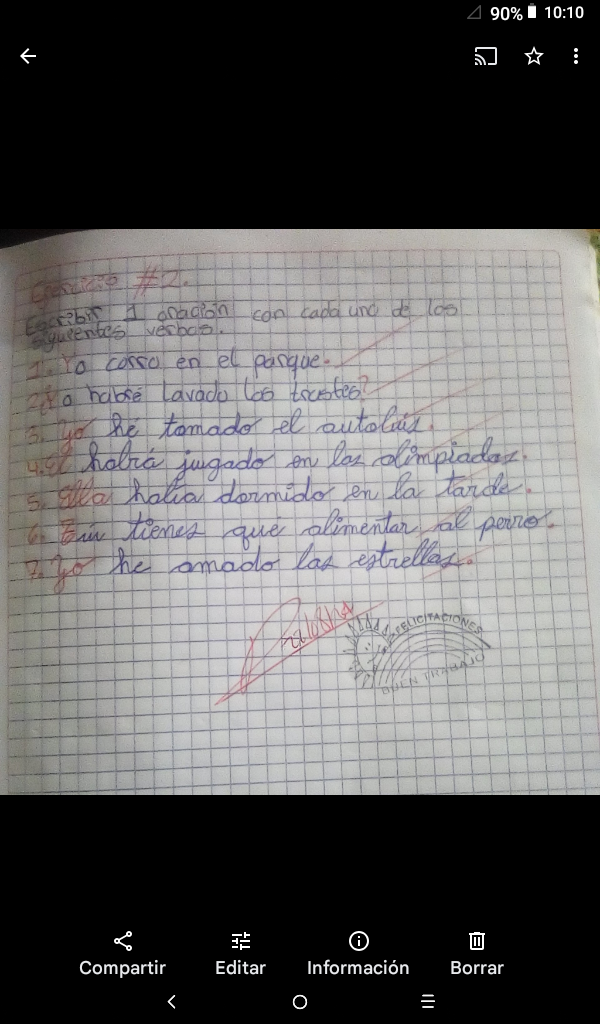 90% 10:10
Ejercicio #2.
Escribir 1 oración con cada uno de los
siguientes verbos.
1. Yo corro en el parque.
2. Yo habré lavado los trastes?
3. Yo he tomado el autobús.
4. El habrá jugado en las olimpiadas.
5. Ella había dormido en la tarde.
6. Tú tienes que alimentar al perro.
7. Yo he amado las estrellas.
FELICITACIONES
BUEN TRABAJO
Compartir Editar Información Borrar